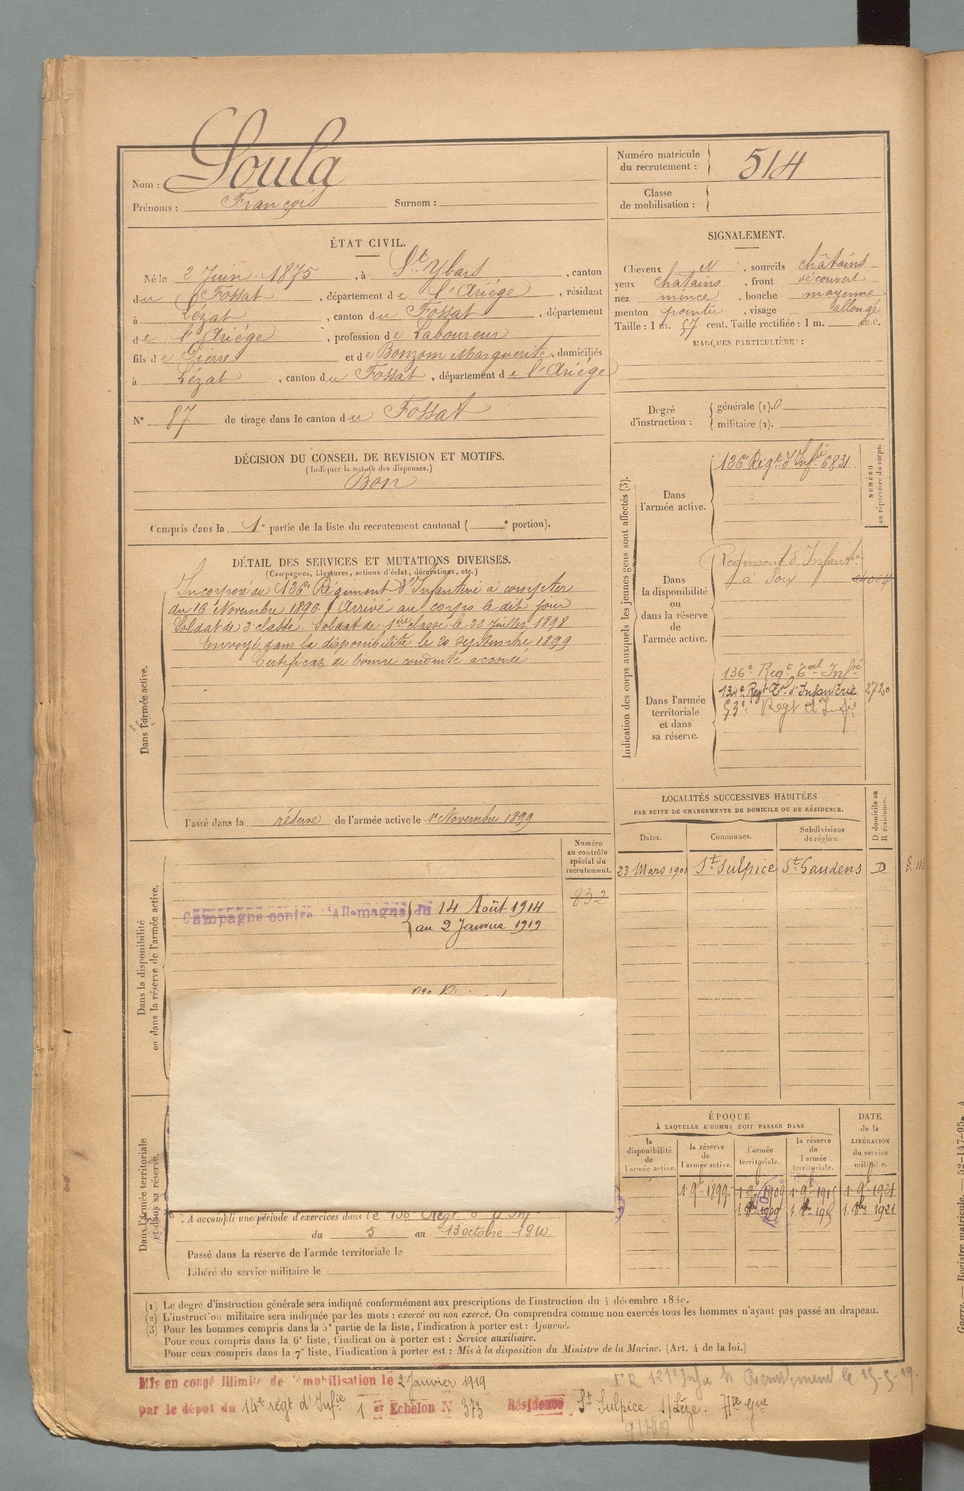 Nom : Soula
Prénoms : François Surnom :
Numéro matricule du recrutement : 514
Classe de mobilisation :
ÉTAT CIVIL.
Né le 2 Juin 1875, à St Ybars, canton
du Fossat, département de l'Ariége, résidant
à Lézat, canton du Fossat, département
de l'Ariége, profession de Laboureur
fils de Pierre et de Bonzom Marguerite, domiciliés
à Lézat, canton du Fossat, département de l'Ariége
N° 87 de tirage dans le canton du Fossat
SIGNALEMENT.
Cheveux N, sourcils châtains
yeux châtains, front découvert
nez mince, bouche moyenne
menton pointu, visage allongé
Taille : 1 m. 57 cent. Taille rectifiée : 1 m. c.
MARQUES PARTICULIÈRES :
Degré d'instruction :
générale (1). 0
militaire (2).
DÉCISION DU CONSEIL DE REVISION ET MOTIFS.
(Indiquer la nature des dispenses.)
Bon
Compris dans la 1e partie de la liste du recrutement cantonal ( portion).
DÉTAIL DES SERVICES ET MUTATIONS DIVERSES.
(Campagnes, blessures, actions d'éclat, décorations, etc.)
Dans l'armée active.
Incorporé au 136e Régiment d'Infanterie à compter
du 16 Novembre 1896. Arrivé au corps le dit jour
Soldat de 2e classe. Soldat de 1ère classe le 22 Juillet 1898
Envoyé dans la disponibilité le 20 septembre 1899
Certificat de bonne conduite accordé
Passé dans la réserve de l'armée active le 1er Novembre 1899
Indication des corps auxquels les jeunes gens sont affectés (3).
NUMÉRO au répertoire du corps.
Dans l'armée active.
136e Régt d'Infie 6831
Dans la disponibilité ou dans la réserve de l'armée active.
Régiment d'Infanterie
à Foix
Dans l'armée territoriale et dans sa réserve.
136e Régt Tal Infie
134e Régt Tal d'Infanterie 2720
Régt d'Infie
LOCALITÉS SUCCESSIVES HABITÉES
PAR SUITE DE CHANGEMENTS DE DOMICILE OU DE RÉSIDENCE.
Dates. Communes. Subdivisions de région. D domicile ou R résidence.
23 Mars 1901 St Sulpice St Gaudens D
Dans la disponibilité ou dans la réserve de l'armée active.
Numéro au contrôle spécial du recrutement.
832
Campagne contre l'Allemagne du 14 Août 1914
au 2 Janvier 1919
Dans l'armée territoriale et dans sa réserve.
A accompli une période d'exercices dans le 136 Régt d'Inf
du 5 au 13 octobre 1910
Passé dans la réserve de l'armée territoriale le
Libéré du service militaire le
ÉPOQUE
À LAQUELLE L'HOMME DOIT PASSER DANS
la disponibilité de l'armée active. la réserve de l'armée active. l'armée territoriale. la réserve de l'armée territoriale. DATE de la LIBÉRATION du service militaire.
1 9bre 1899 1 9bre 1909 1 9bre 1915 1 9bre 1921
(1) Le degré d'instruction générale sera indiqué conformément aux prescriptions de l'instruction du 4 décembre 1889.
(2) L'instruction militaire sera indiquée par les mots : exercé ou non exercé. On comprendra comme non exercés tous les hommes n'ayant pas passé au drapeau.
(3) Pour les hommes compris dans la 5e partie de la liste, l'indication à porter est : Ajourné.
Pour ceux compris dans la 6e liste, l'indication à porter est : Service auxiliaire.
Pour ceux compris dans la 7e liste, l'indication à porter est : Mis à la disposition du Ministre de la Marine. (Art. 4 de la loi.)
Mis en congé illimité de démobilisation le 2 Janvier 1919
par le dépot du 14e régt d'Infie 1er Echelon N° 373 Résidence St Sulpice s/Lèze. Hte Gne